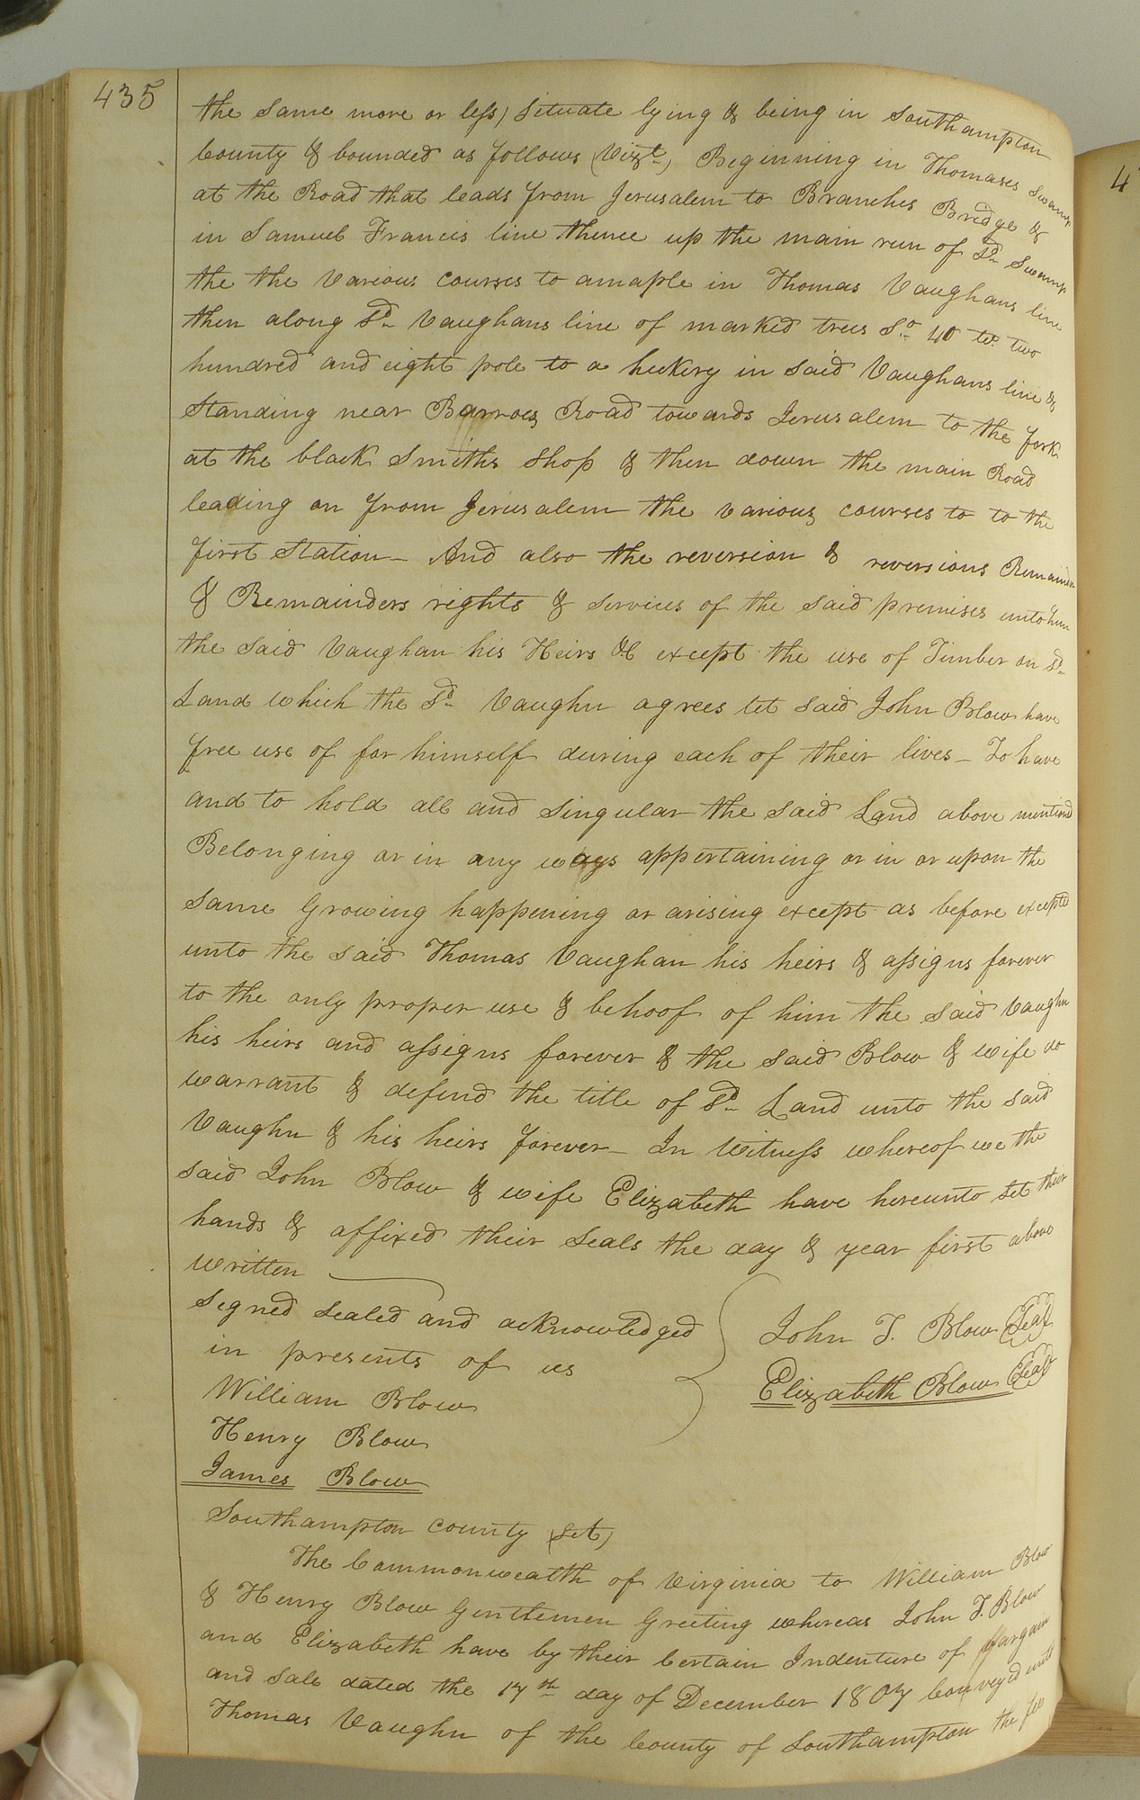 435
the same more or less) situate lying & being in Southampton
County & bounded as follows (Vizt.) Beginning in Thomases Swamp
at the Road that leads from Jerusalem to Branches Bridge &
in Samuel Francis line thence up the main run of sd. Swamp
the the various courses to a maple in Thomas Vaughans line
then along sd. Vaughans line of marked trees So. 40 W. two
hundred and eight pole to a hickery in said Vaughans line &
Standing near Barrows Road towards Jerusalem to the fork
at the black Smiths Shop & then down the main Road
leading on from Jerusalem the various courses to to the
first Station — And also the reversion & reversions Remainder
& Remainders rights & services of the said premises unto him
the said Vaughan his Heirs &c except the use of Timber on sd.
Land which the sd. Vaughn agrees let said John Blow have
free use of for himself during each of their lives — To have
and to hold all and singular the said Land above mentiond
Belonging or in any ways appertaining or in or upon the
same Growing happening or arising except as before excepted
unto the said Thomas Vaughan his heirs & assigns forever
to the only proper use & behoof of him the said Vaughn
his heirs and assigns forever & the said Blow & wife do
warrant & defend the title of sd. Land unto the said
Vaughn & his heirs forever — In Witness whereof we the
said John Blow & wife Elizabeth have hereunto set their
hands & affixed their seals the day & year first above
written
Signed sealed and acknowledged
in presents of us
John T. Blow Seal
Elizabeth Blow Seal
William Blow
Henry Blow
James Blow
Southampton County (set)
The Commonwealth of Virginia to William Blow
& Henry Blow Gentlemen Greeting whereas John T. Blow
and Elizabeth have by their Certain Indenture of Bargain
and sale dated the 17th day of December 1807 Conveyed unto
Thomas Vaughn of the County of Southampton the fee